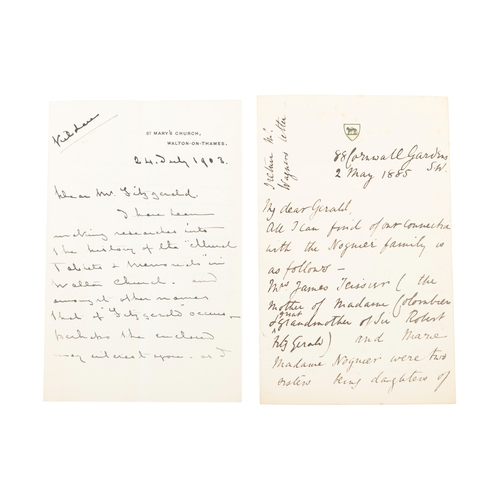 Kildare
ST MARY'S CHURCH,
WALTON-ON-THAMES.
24. July 1903.
Dear Mr. Fitzgerald.
I have been
making researches into
the history of the "Church
Tablets & Memorials" in
Walton Church. and
amongst other names
that of "Fitzgerald" occurs -
perhaps the enclosed
may interest you. and
I return Mr
Wagners letter
88 Cornwall Gardens
S.W.
2 May 1885
My dear Gerald.
All I can find of our connection
with the Noguier family is
as follows -
Mrs James Teissier ( the
mother of Madame Colombier
& great
Grandmother of Sir Robert
FitzGerald) and Marie
Madame Noguier were two
sisters being daughters of